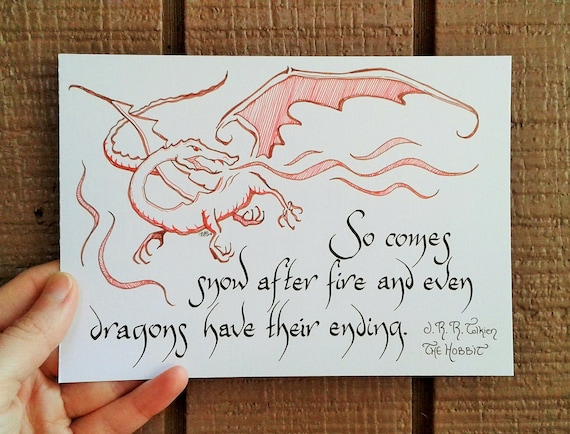 So comes
snow after fire and even
dragons have their ending.
J. R. R. Tolkien
THE HOBBIT